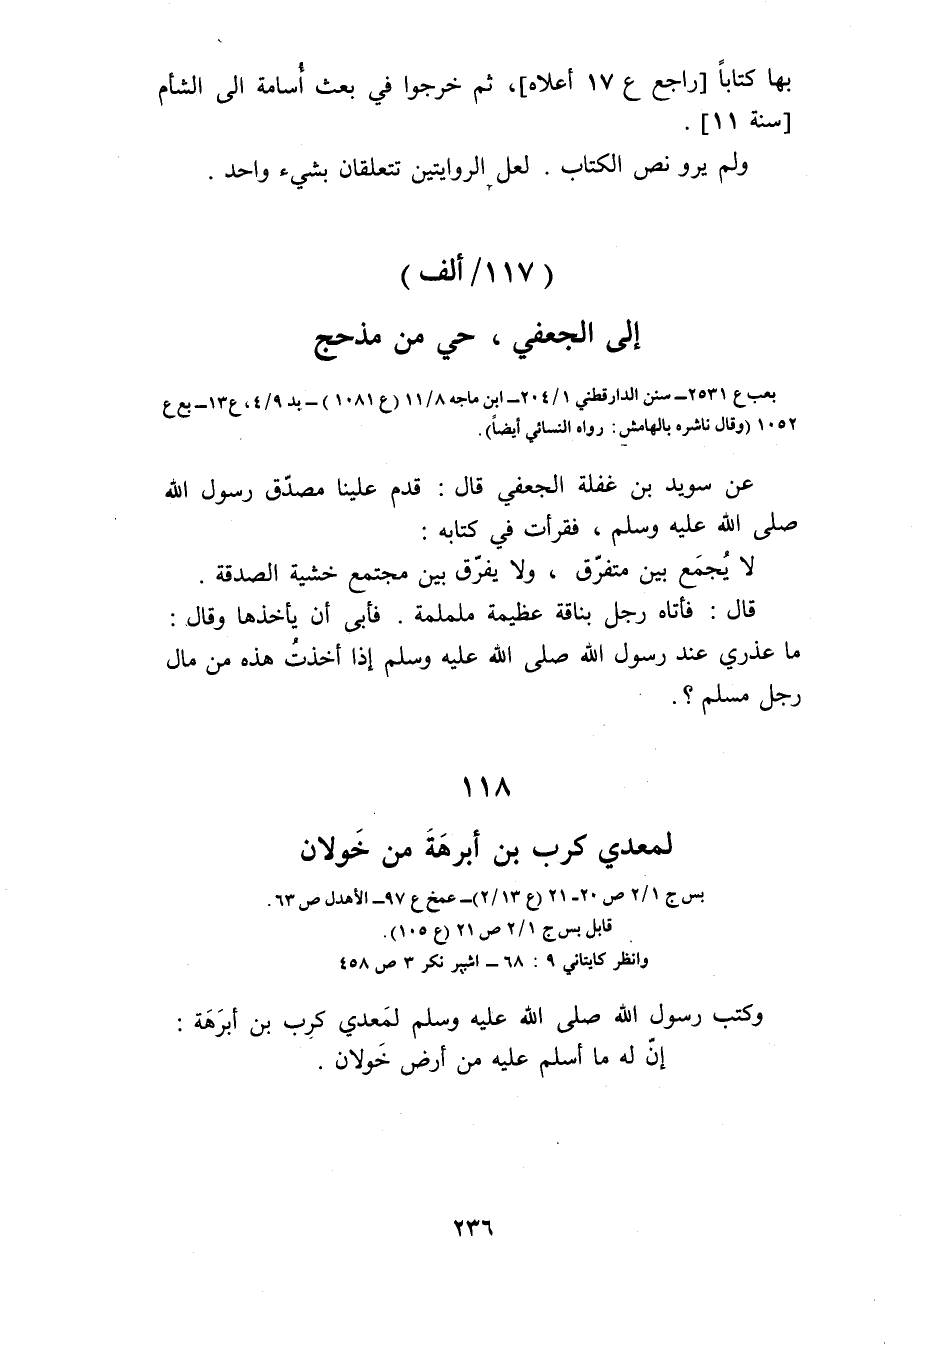 بها كتاباً [راجع ع ١٧ أعلاه]، ثم خرجوا في بعث أُسامة الى الشأم
[سنة ١١] .
ولم يرو نص الكتاب . لعل الروايتين تتعلقان بشيء واحد .
( ١١٧/ ألف )
إلى الجعفي ، حي من مذحج
بعب ع ٢٥٣١ــ سنن الدارقطني ٢٠٤/١ــ ابن ماجه ١١/٨ (ع ١٠٨١) ــ بد ٤/٩، ع١٣ــ بع ع
١٠٥٢ (وقال ناشره بالهامش : رواه النسائي أيضاً).
عن سويد بن غفلة الجعفي قال : قدم علينا مصدّق رسول الله
صلى الله عليه وسلم ، فقرأت في كتابه :
لا يُجمَع بين متفرّق ، ولا يفرّق بين مجتمع خشية الصدقة .
قال : فأتاه رجل بناقة عظيمة ململمة . فأبى أن يأخذها وقال :
ما عذري عند رسول الله صلى الله عليه وسلم إذا أخذتُ هذه من مال
رجل مسلم ؟ .
١١٨
لمعدي كرب بن أبرهَةَ من خَولان
بس ج ٢/١ ص ٢٠ـ ٢١ (ع ٢/١٣)ــ عمخ ع ٩٧ــ الأهدل ص ٦٣.
قابل بس ج ٢/١ ص ٢١ (ع ١٠٥).
وانظر كايتاني ٩ : ٦٨ ــ اشپر نكر ٣ ص ٤٥٨
وكتب رسول الله صلى الله عليه وسلم لمَعدي كرِب بن أبرَهَة :
إنّ له ما أسلم عليه من أرض خَولان .
٢٣٦